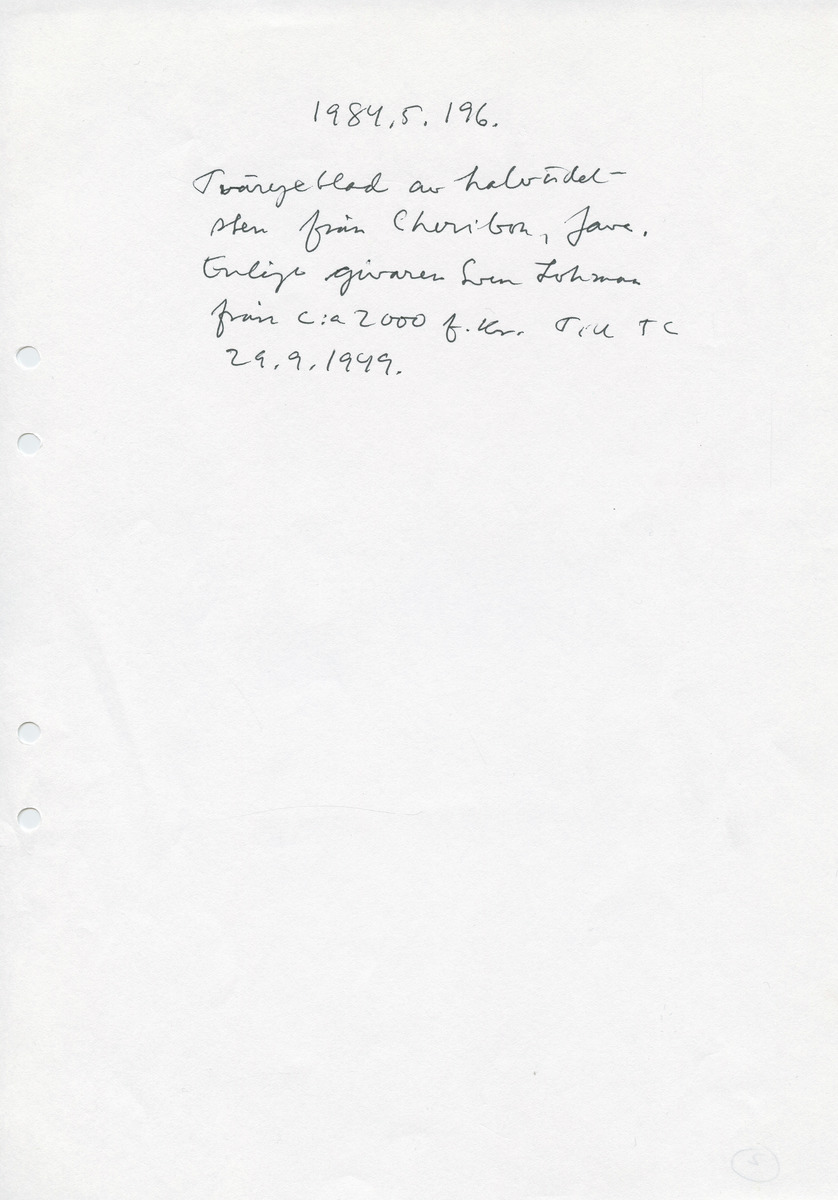 1984.5.196.
Tväryxeblad av halvädel-
sten från Cheribon, Java.
Enligt givaren Sven Lohman
från c:a 2000 f.Kr. Till TC
29.9.1949.
5